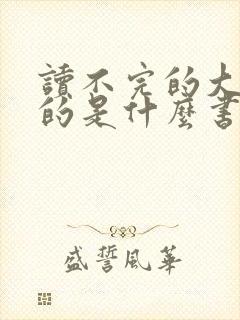 讀不完的大
的是什麼書
盛誓風華